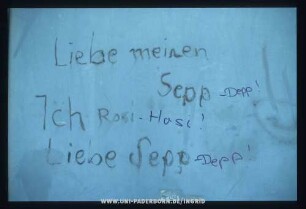 Liebe meinen
Sepp -Depp!
Ich Rosi-Hasi!
Liebe Sepp -Depp!
WWW.UNI-PADERBORN.DE/INGRID